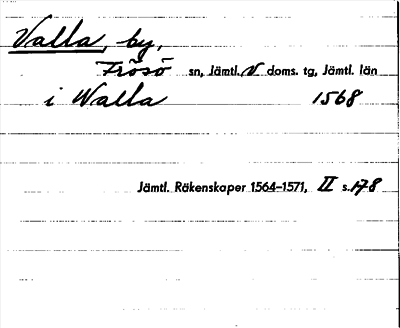 Valla, by,
Frösö sn, Jämtl. V doms. tg, Jämtl. län
i Walla 1568
Jämtl. Räkenskaper 1564–1571, II s. 178